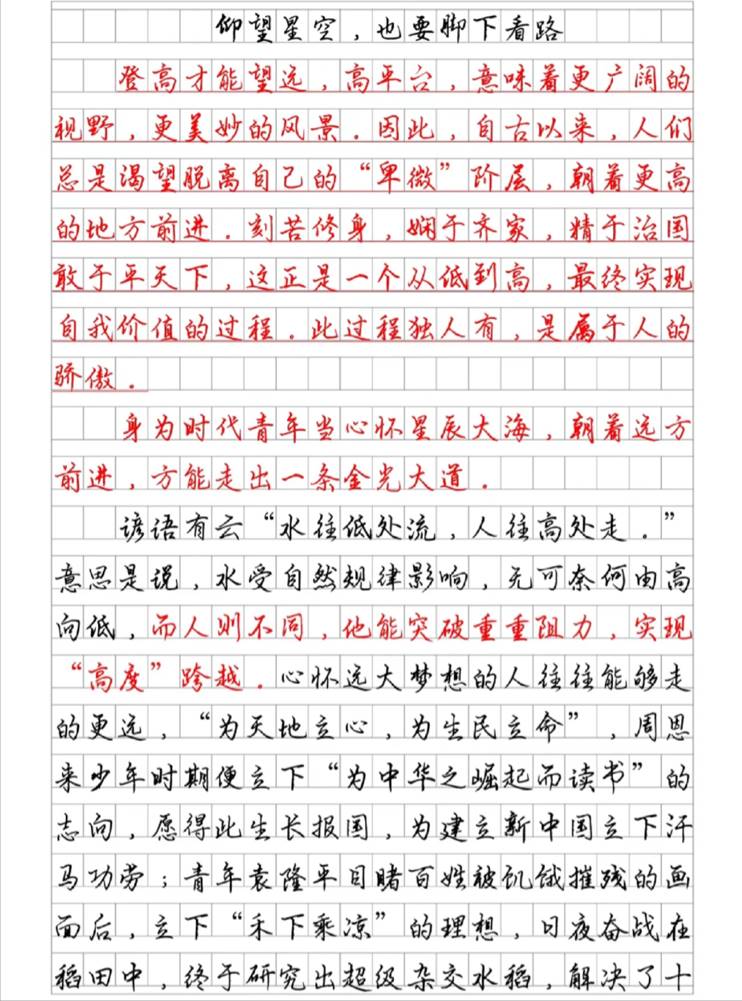 仰望星空，也要脚下看路
登高才能望远，高平台，意味着更广阔的
视野，更美妙的风景．因此，自古以来，人们
总是渴望脱离自己的“卑微”阶层，朝着更高
的地方前进．刻苦修身，娴于齐家，精于治国
敢于平天下，这正是一个从低到高，最终实现
自我价值的过程．此过程独人有，是属于人的
骄傲．
身为时代青年当心怀星辰大海，朝着远方
前进，方能走出一条金光大道．
谚语有云“水往低处流，人往高处走．”
意思是说，水受自然规律影响，无可奈何由高
向低，而人则不同，他能突破重重阻力，实现
“高度”跨越．心怀远大梦想的人往往能够走
的更远，“为天地立心，为生民立命”，周恩
来少年时期便立下“为中华之崛起而读书”的
志向，愿得此生长报国，为建立新中国立下汗
马功劳；青年袁隆平目睹百姓被饥饿摧残的画
面后，立下“禾下乘凉”的理想，日夜奋战在
稻田中，终于研究出超级杂交水稻，解决了十